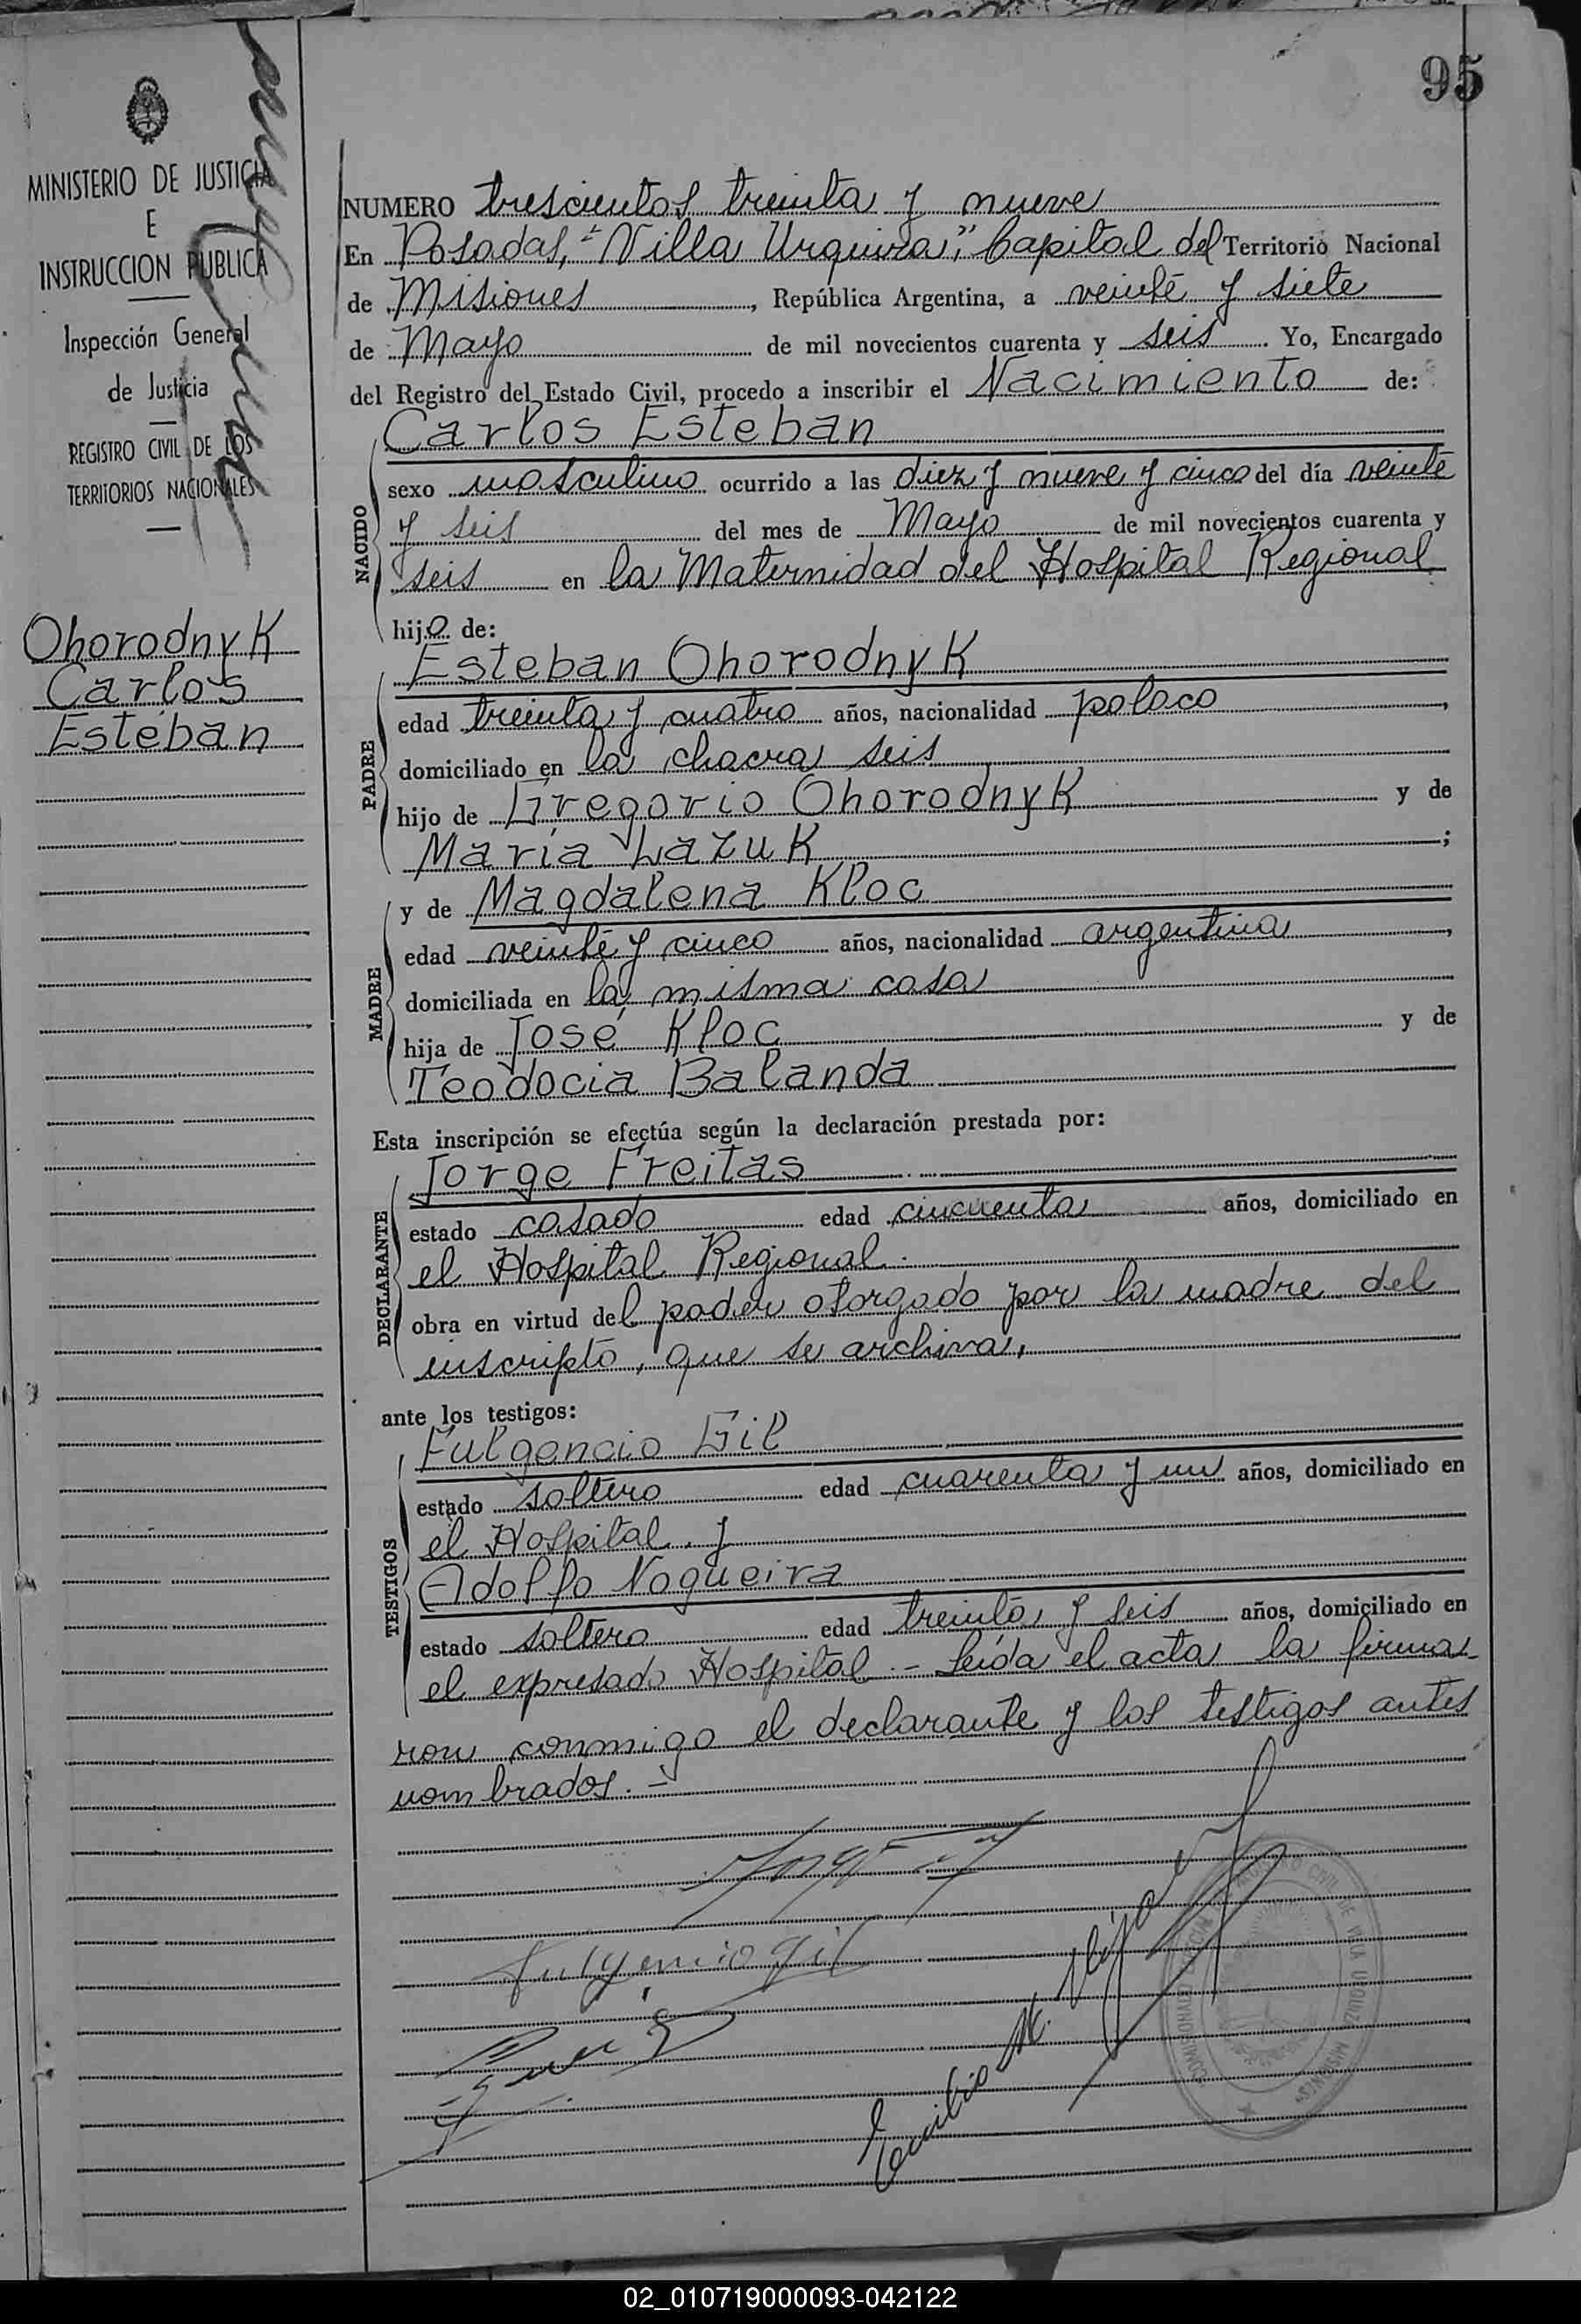 95
MINISTERIO DE JUSTICIA
E
INSTRUCCION PUBLICA
Inspección General
de Justicia
REGISTRO CIVIL DE LOS
TERRITORIOS NACIONALES
Ohorodnyk
Carlos
Esteban
NUMERO trescientos treinta y nueve
En Posadas, "Villa Urquiza", Capital del Territorio Nacional
de Misiones, República Argentina, a veinte y siete
de Mayo de mil novecientos cuarenta y seis. Yo, Encargado
del Registro del Estado Civil, procedo a inscribir el Nacimiento de:
Carlos Esteban
NACIDO
sexo masculino ocurrido a las diez y nueve y cinco del día veinte
y seis del mes de Mayo de mil novecientos cuarenta y
seis en la Maternidad del Hospital Regional
hijo de:
Esteban Ohorodnyk
PADRE
edad treinta y cuatro años, nacionalidad polaco,
domiciliado en la chacra seis
hijo de Gregorio Ohorodnyk y de
María Lazuk;
y de Magdalena Kloc
MADRE
edad veinte y cinco años, nacionalidad argentina,
domiciliada en la misma casa
hija de José Kloc y de
Teodocia Balanda
Esta inscripción se efectúa según la declaración prestada por:
Jorge Freitas
DECLARANTE
estado casado edad cincuenta años, domiciliado en
el Hospital Regional.
obra en virtud del poder otorgado por la madre del
inscripto, que se archiva,
ante los testigos:
Fulgencio Gil
TESTIGOS
estado soltero edad cuarenta y un años, domiciliado en
el Hospital, y
Adolfo Nogueira
estado soltero edad treinta y seis años, domiciliado en
el expresado Hospital.- Leída el acta la firma-
ron conmigo el declarante y los testigos antes
nombrados.-
Fulgencio Gil
Emilio M.
REGISTRO CIVIL DE VILLA URQUIZA MISIONES
02_010719000093-042122